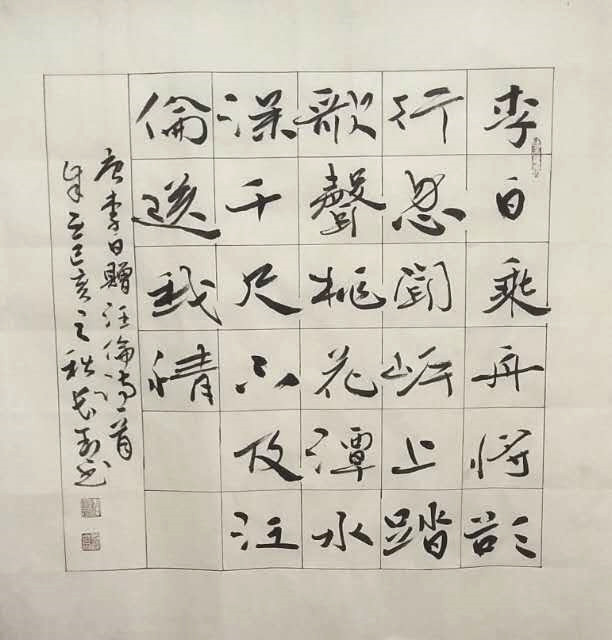 李白乘舟將欲
行忽聞岸上踏
歌聲桃花潭水
深千尺不及汪
倫送我情
唐李白贈汪倫詩一首
己亥之秋 书